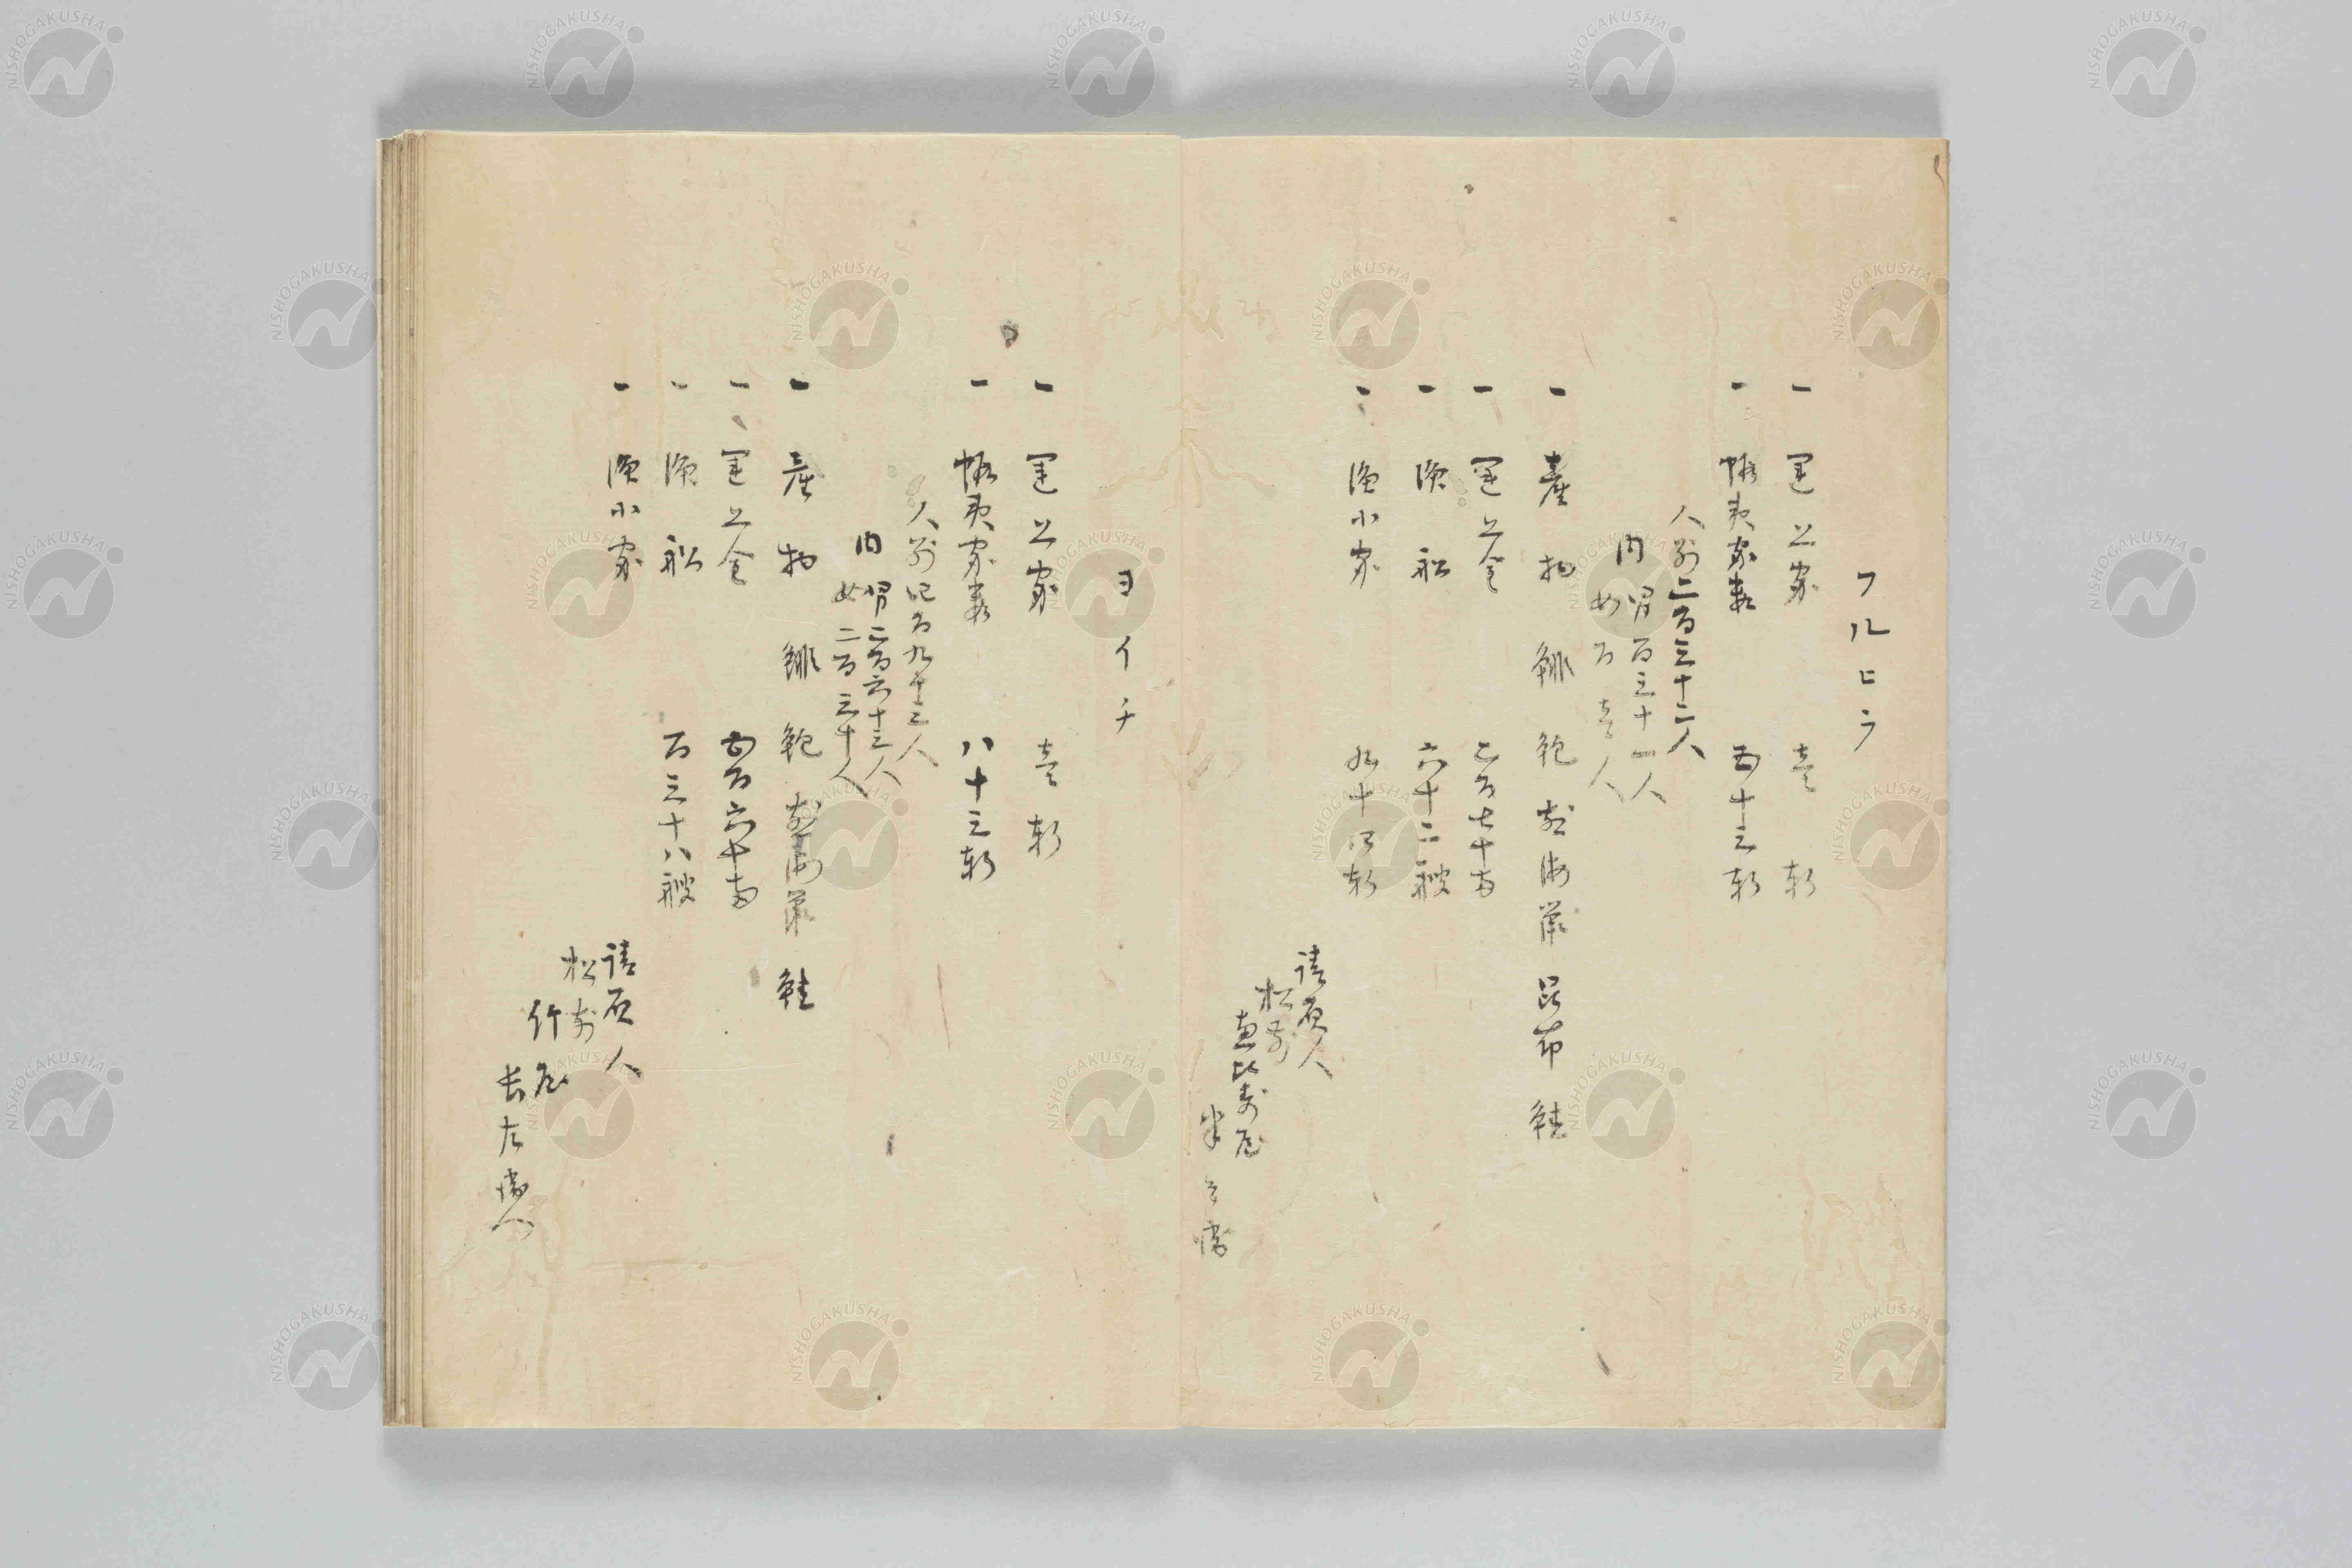 フルヒラ
一 運上家 壱軒
一 蝦夷家数 五十三軒
人別二百三十二人
内 男百三十一人
女百壱人
一 産物 鯡 鮑 煎海鼠 昆布 鮭
一 運上金 二百七十両
一 漁船 六十二艘
一 漁小家 九十四軒
請負人
松前
恵比寿屋
半兵衛
ヨイチ
一 運上家 壱軒
一 蝦夷家数 八十三軒
人別四百九十三人
内 男二百六十三人
女二百三十人
一 産物 鯡 鮑 煎海鼠 鮭
一 運上金 五百六十両
一 漁船 百三十八艘
一 漁小家
請負人
松前
竹屋
長左衛門
NISHOGAKUSHA